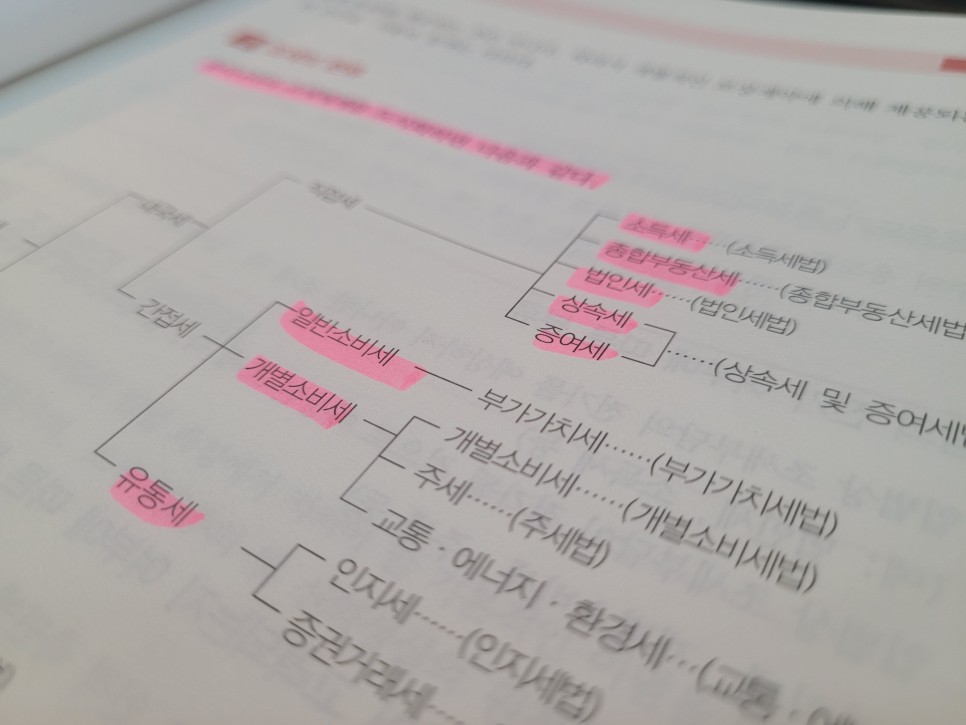 다음과 같다.
내국세
직접세
소득세……(소득세법)
종합부동산세……(종합부동산세법
법인세……(법인세법)
상속세
증여세
……(상속세 및 증여세법
간접세
일반소비세
부가가치세……(부가가치세법)
개별소비세
개별소비세……(개별소비세법)
주세……(주세법)
교통·에너지·환경세…(교통·
유통세
인지세……(인지세법)
증권거래세……